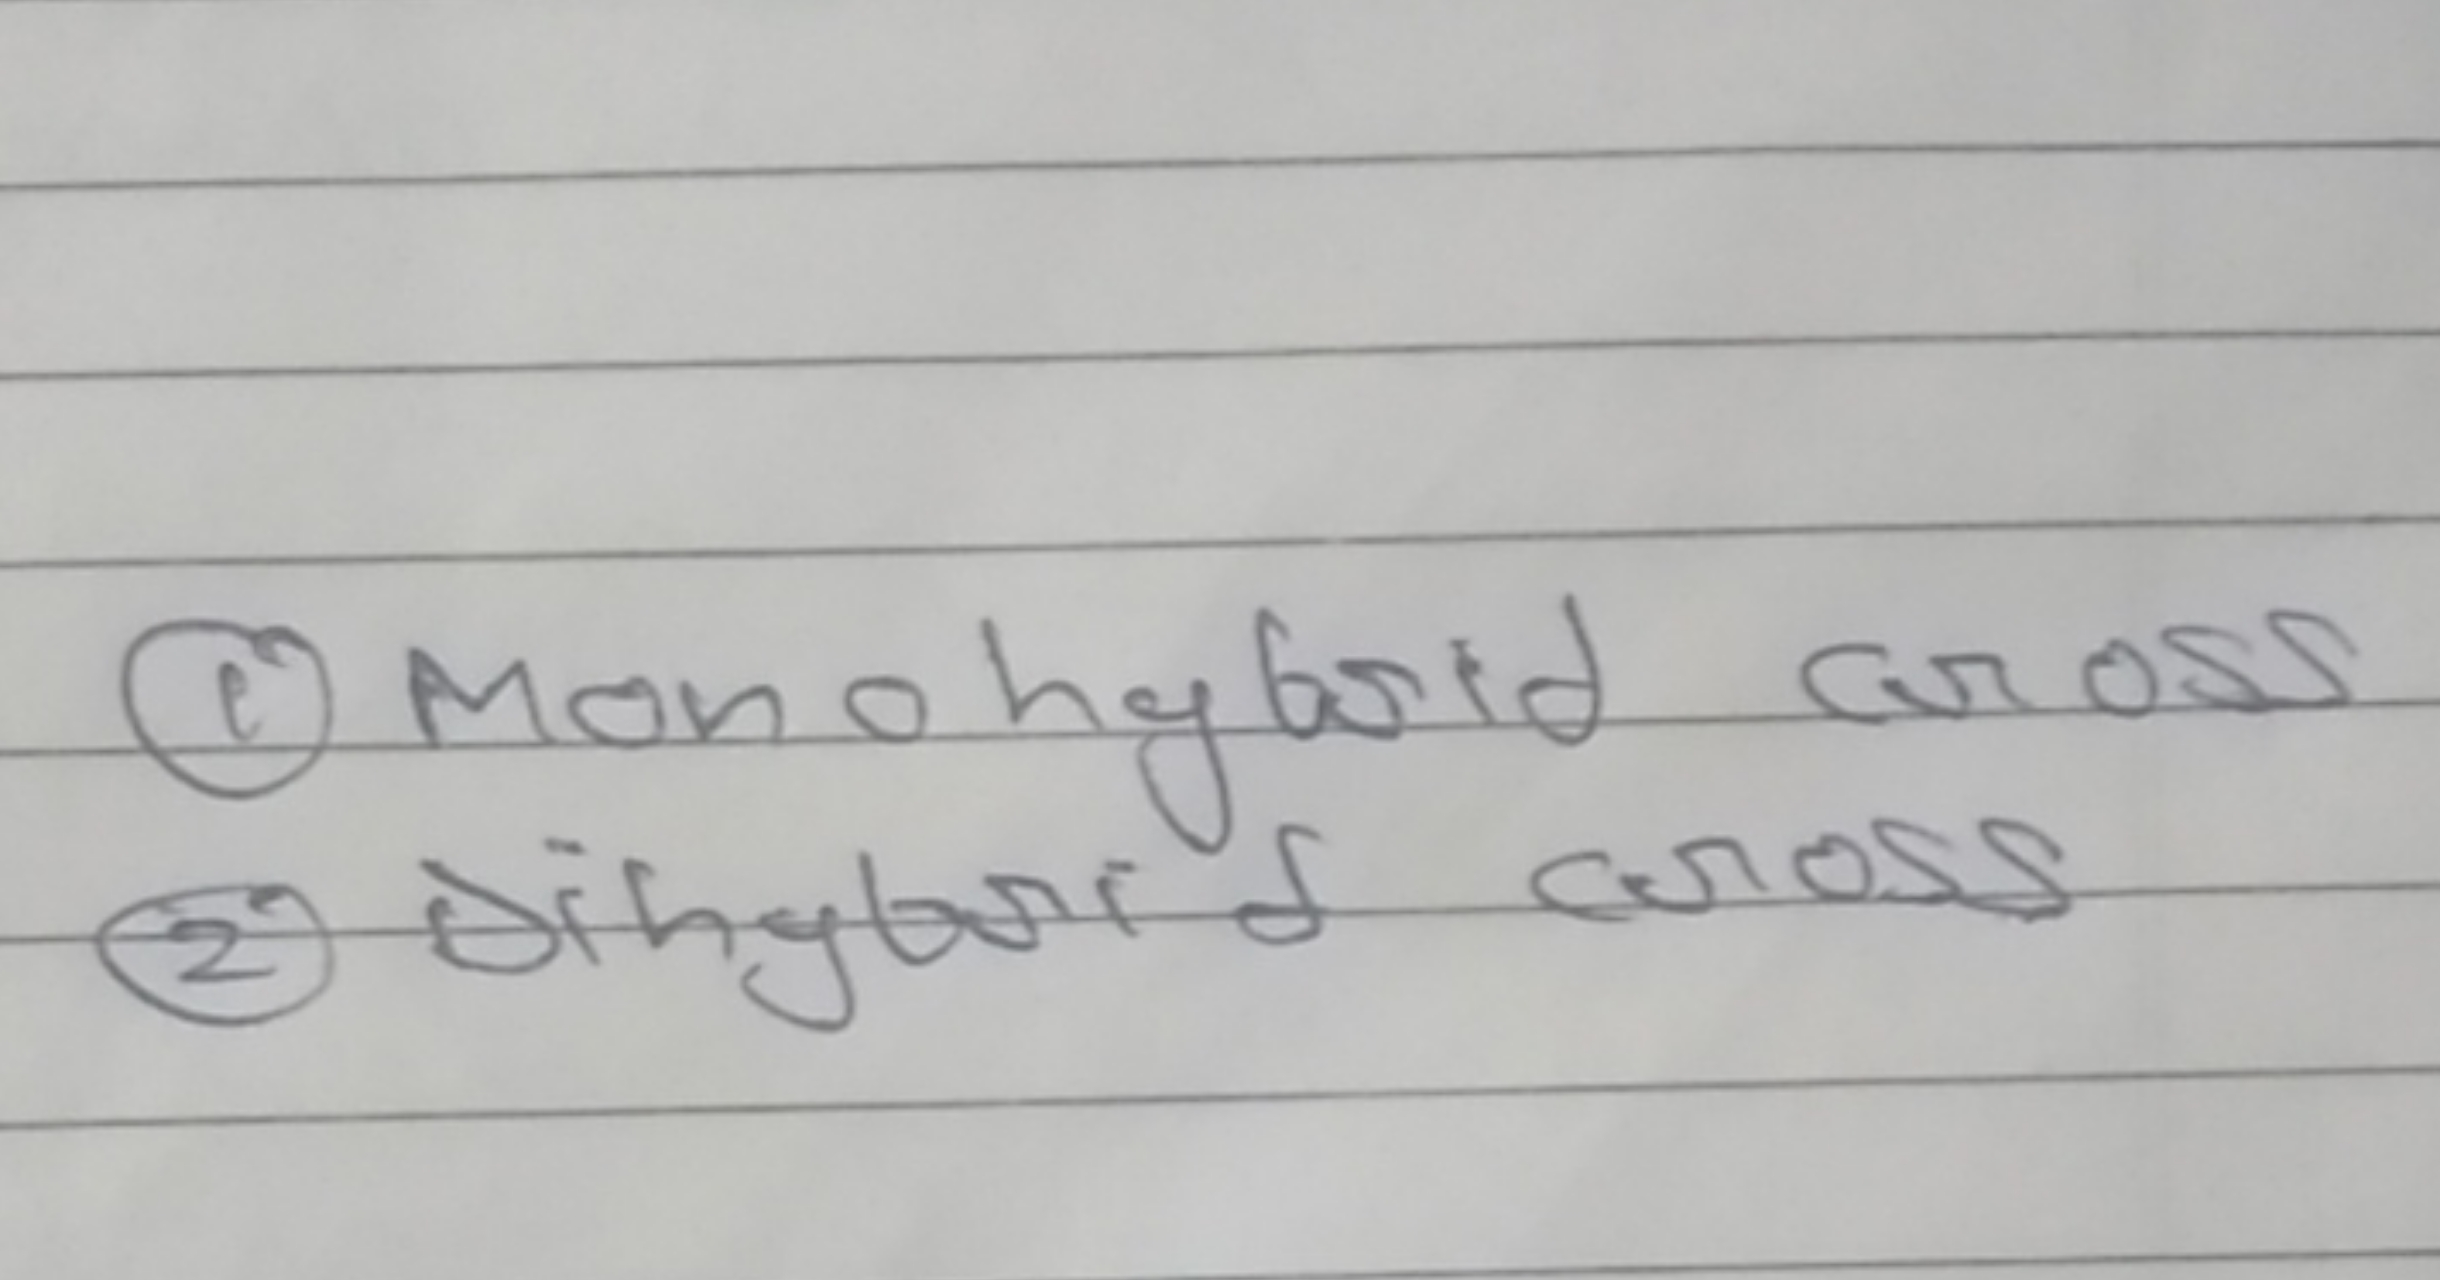 ① Monohybrid cross
② Dihybrid cross